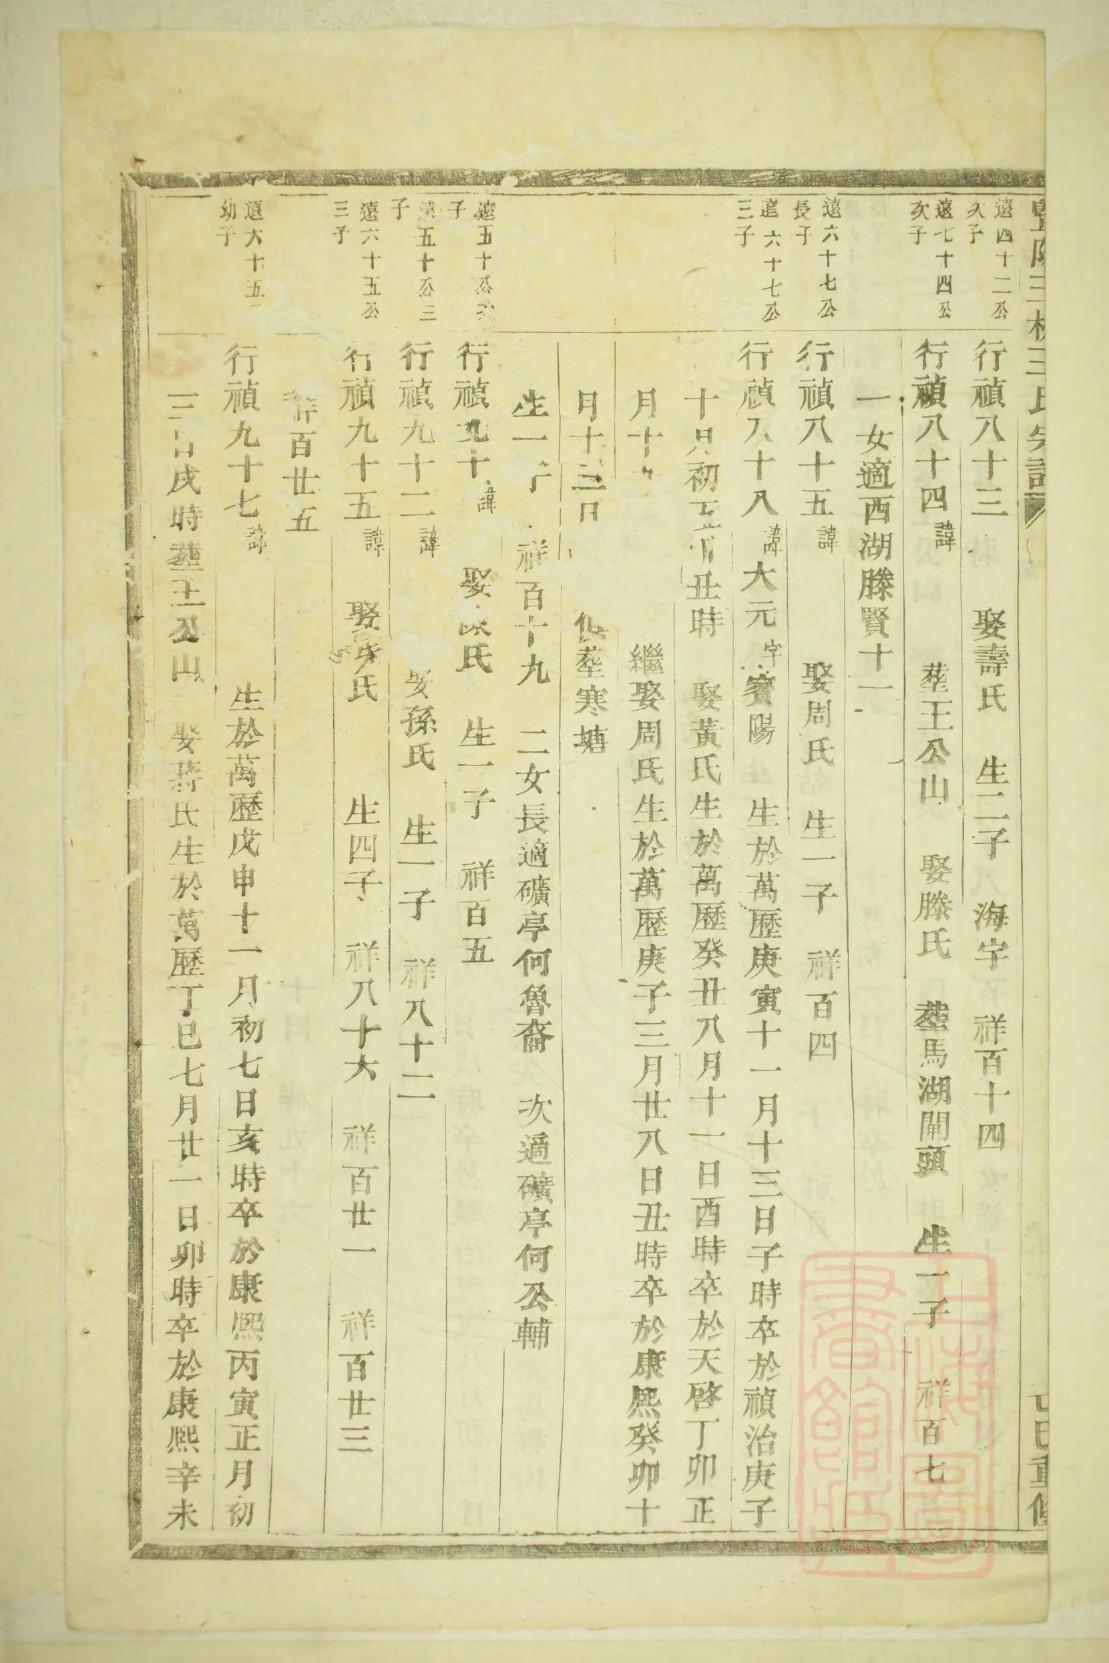 遠四十二公
次子
行禎八十三 娶壽氏 生二子 海字 祥百十四
遠七十四公
次子
行禎八十四諱 塟王公山 娶滕氏 塟馬湖閘頭 生一子 祥百七
一女適西湖滕賢十一
遠六十七公
長子
行禎八十五諱 娶周氏 生一子 祥百四
遠六十七公
三子
行禎八十八諱大元字賓陽 生於萬歷庚寅十一月十三日子時卒於禎治庚子
十月初五日丑時 娶黃氏生於萬歷癸丑八月十一日酉時卒於天啓丁卯正
月十 繼娶周氏生於萬歷庚子三月廿八日丑時卒於康熙癸卯十
月十三日 俱塟寒塘
生一子 祥百十九 二女長適礦亭何魯裔 次適礦亭何公輔
遠五十公次
子
行禎九十諱 娶 氏 生一子 祥百五
遠五十公三
子
行禎九十二諱 娶孫氏 生一子 祥八十二
遠六十五公
三子
行禎九十五諱 娶 氏 生四子 祥八十六 祥百廿一 祥百廿三
祥百廿五
遠六十五
幼子
行禎九十七諱 生於萬歷戊申十一月初七日亥時卒於康熙丙寅正月初
三日戌時塟王公山 娶蔣氏生於萬歷丁巳七月廿一日卯時卒於康熙辛未
上海圖書館藏